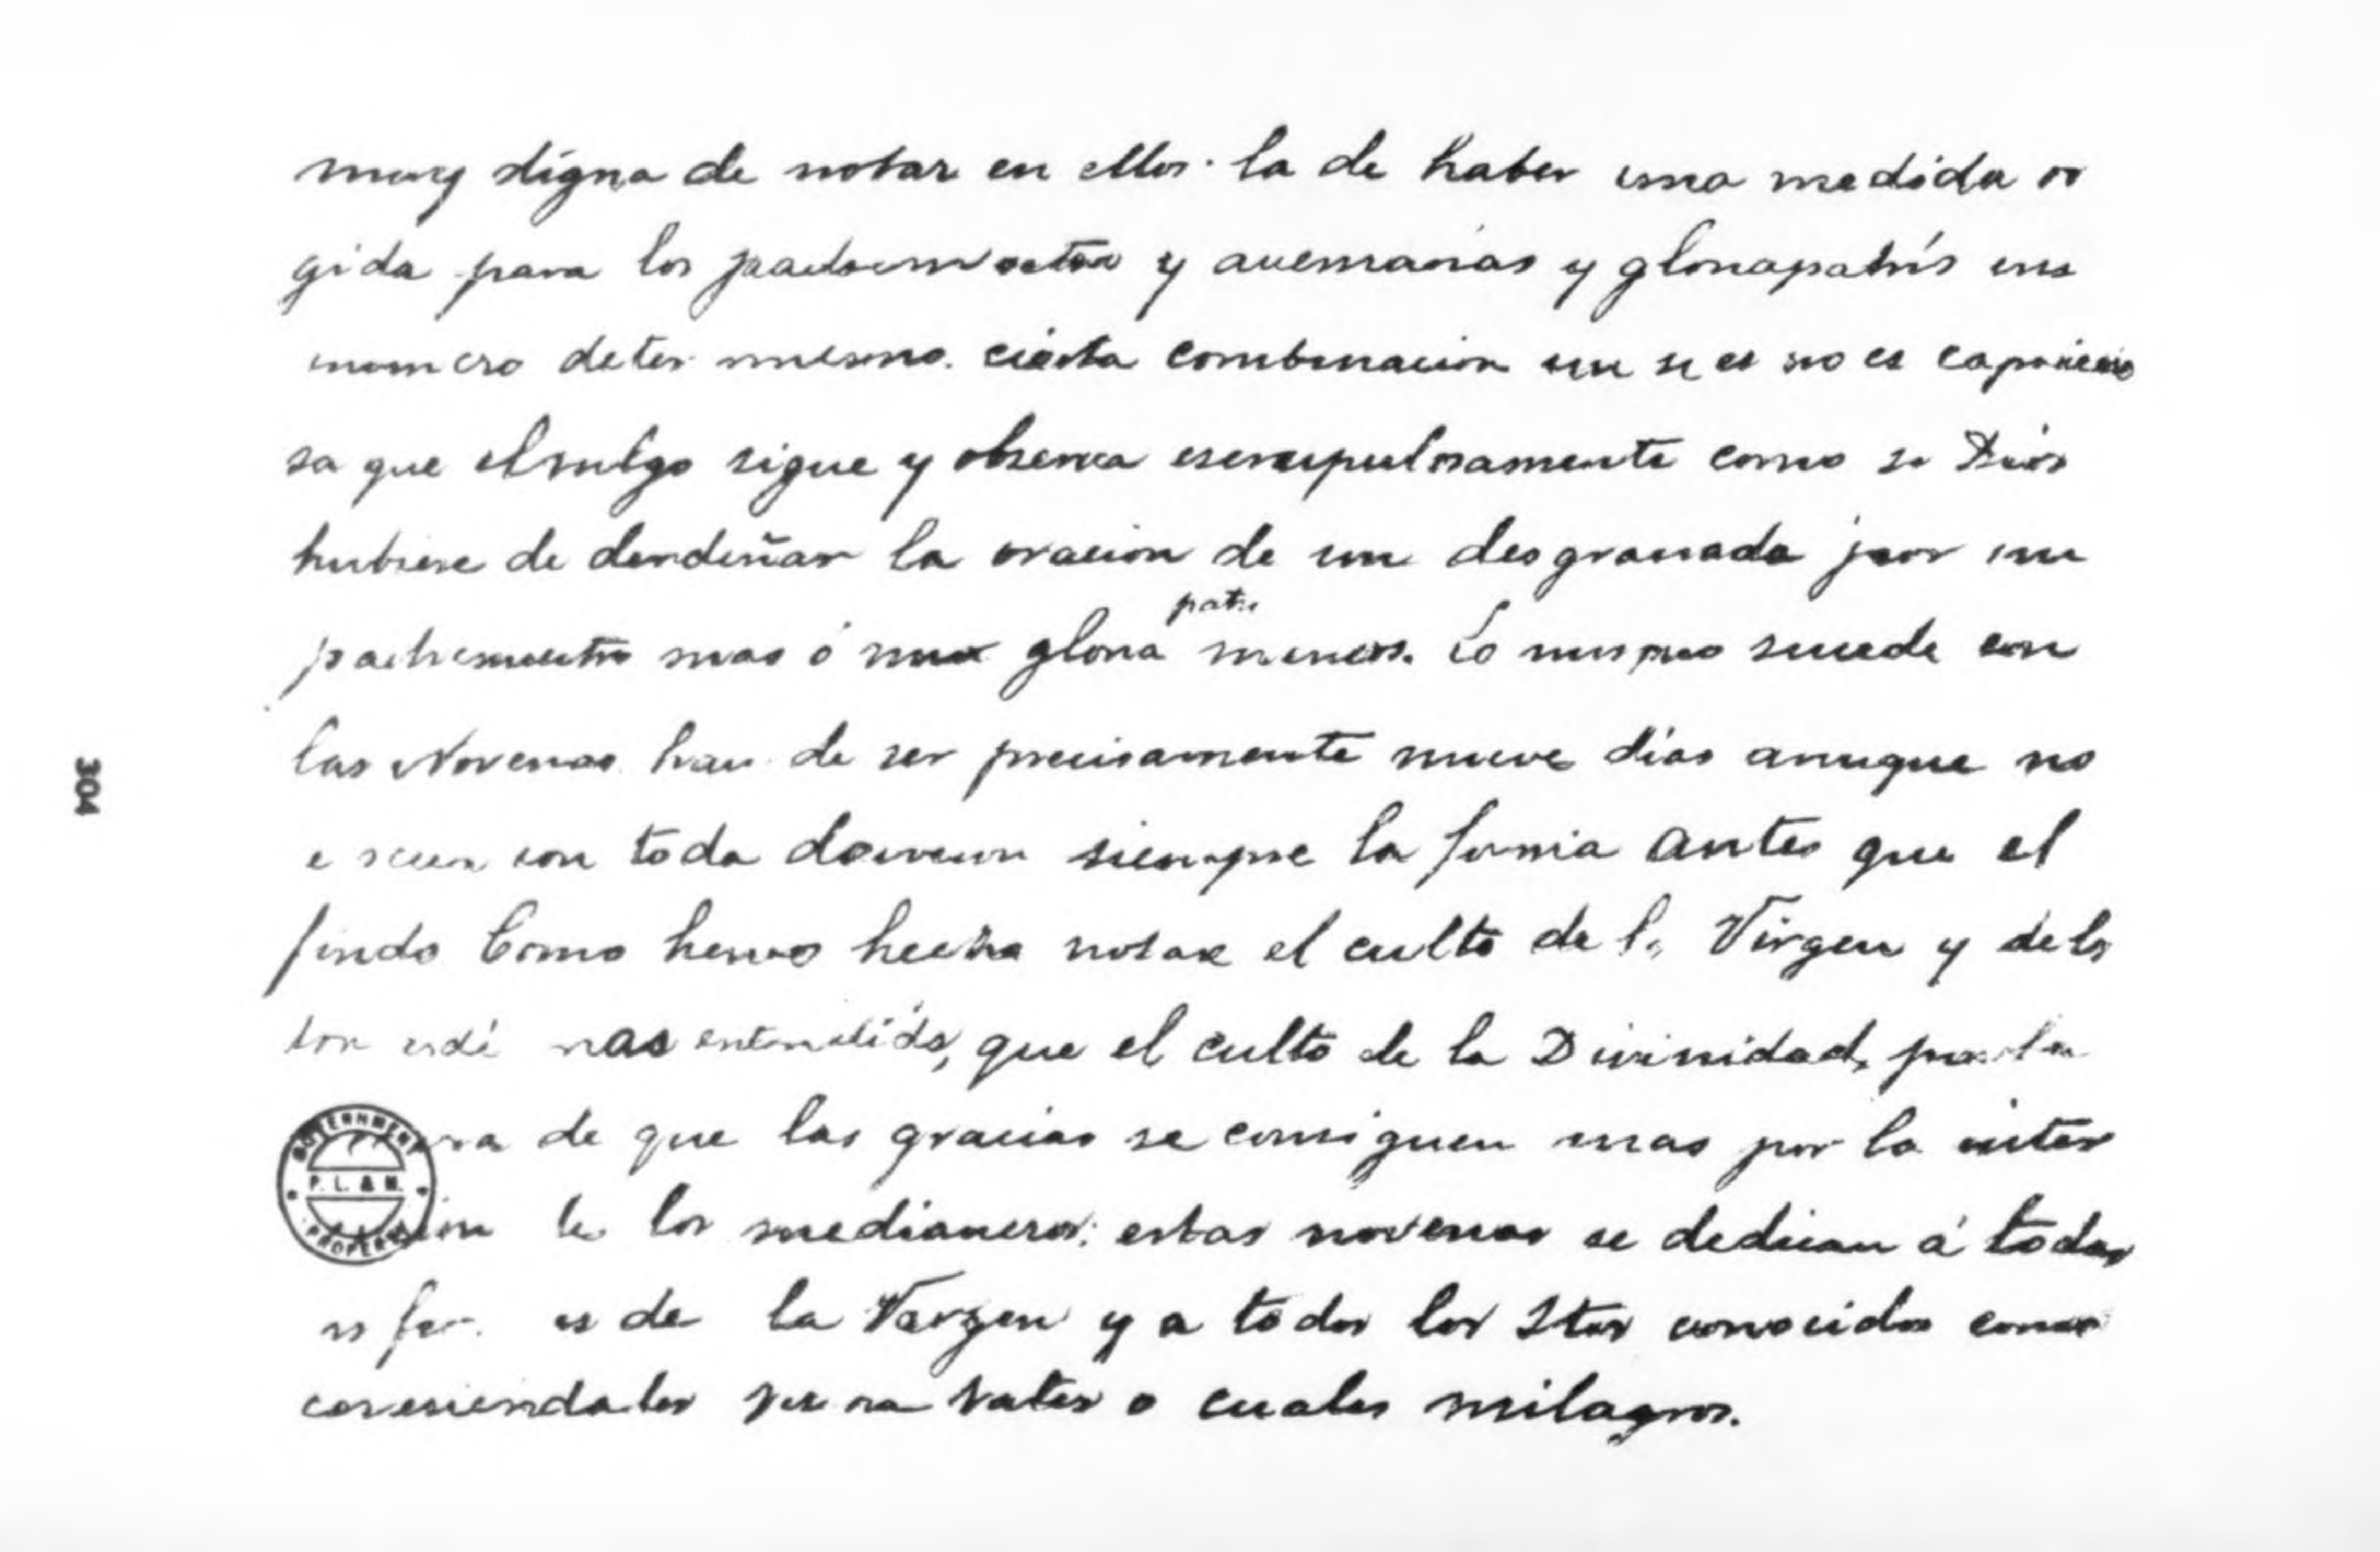 muy digna de notar en ellos: la de haber una medida
gida para los padrenuestros y avemarias y gloriapatris un
numero determinado. cierta combinacion un si es no es capricho
sa que el vulgo sigue y observa escrupulosamente como si Dios
hubiese de desdeñar la oracion de un desgraciado por un
padrenuestro mas ó gloria patri menos. Lo mismo sucede con
las Novenas han de ser precisamente nueve dias aunque no
con toda devocion siempre la forma antes que el
fondo Como hemos hecho notar el culto de la Virgen y de los
mas entendido, que el culto de la Divinidad, por la
de que las gracias se consiguen mas por la inter
de los medianeros: estas novenas se dedican á todas
de la Virgen y a todos los Stos conocidos como
tales o cuales milagros.
304
GOVERNMENT
P. L. & M.
PROPERTY